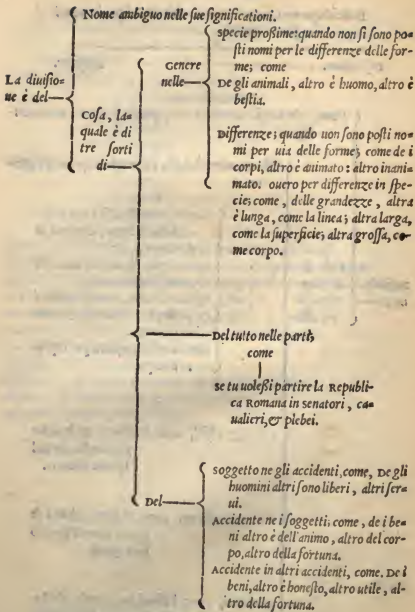 La diuisio=
ne è del
Nome ambiguo nelle sue significationi.
Cosa, la=
quale è di
tre sorti
di
Genere
nelle
specie proßime: quando non si sono po=
sti nomi per le differenze delle for=
me; come
De gli animali, altro è huomo, altro è
bestia.
Differenze; quando non sono posti no=
mi per uia delle forme; come de i
corpi, altro è animato: altro inani=
mato. ouero per differenze in spe=
cie; come, delle grandezze, altra
è lunga, come la linea; altra larga,
come la superficie; altra grossa, co=
me corpo.
Del tutto nelle parti;
come
se tu uoleßi partire la Republi=
ca Romana in senatori, ca=
ualieri, & plebei.
Del
soggetto ne gli accidenti, come, De gli
huomini altri sono liberi, altri ser=
ui.
Accidente ne i soggetti; come, de i be=
ni altro è dell'animo, altro del cor=
po, altro della fortuna.
Accidente in altri accidenti, come. De i
beni, altro è honesto, altro utile, al=
tro della fortuna.